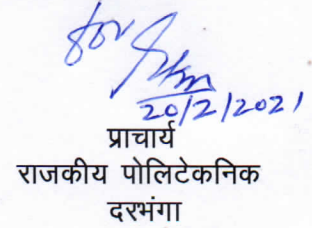 for
20/2/2021
प्राचार्य
राजकीय पोलिटेकनिक
दरभंगा